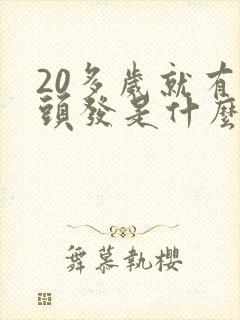 20多歲就有
頭發是什麼
舞慕執櫻